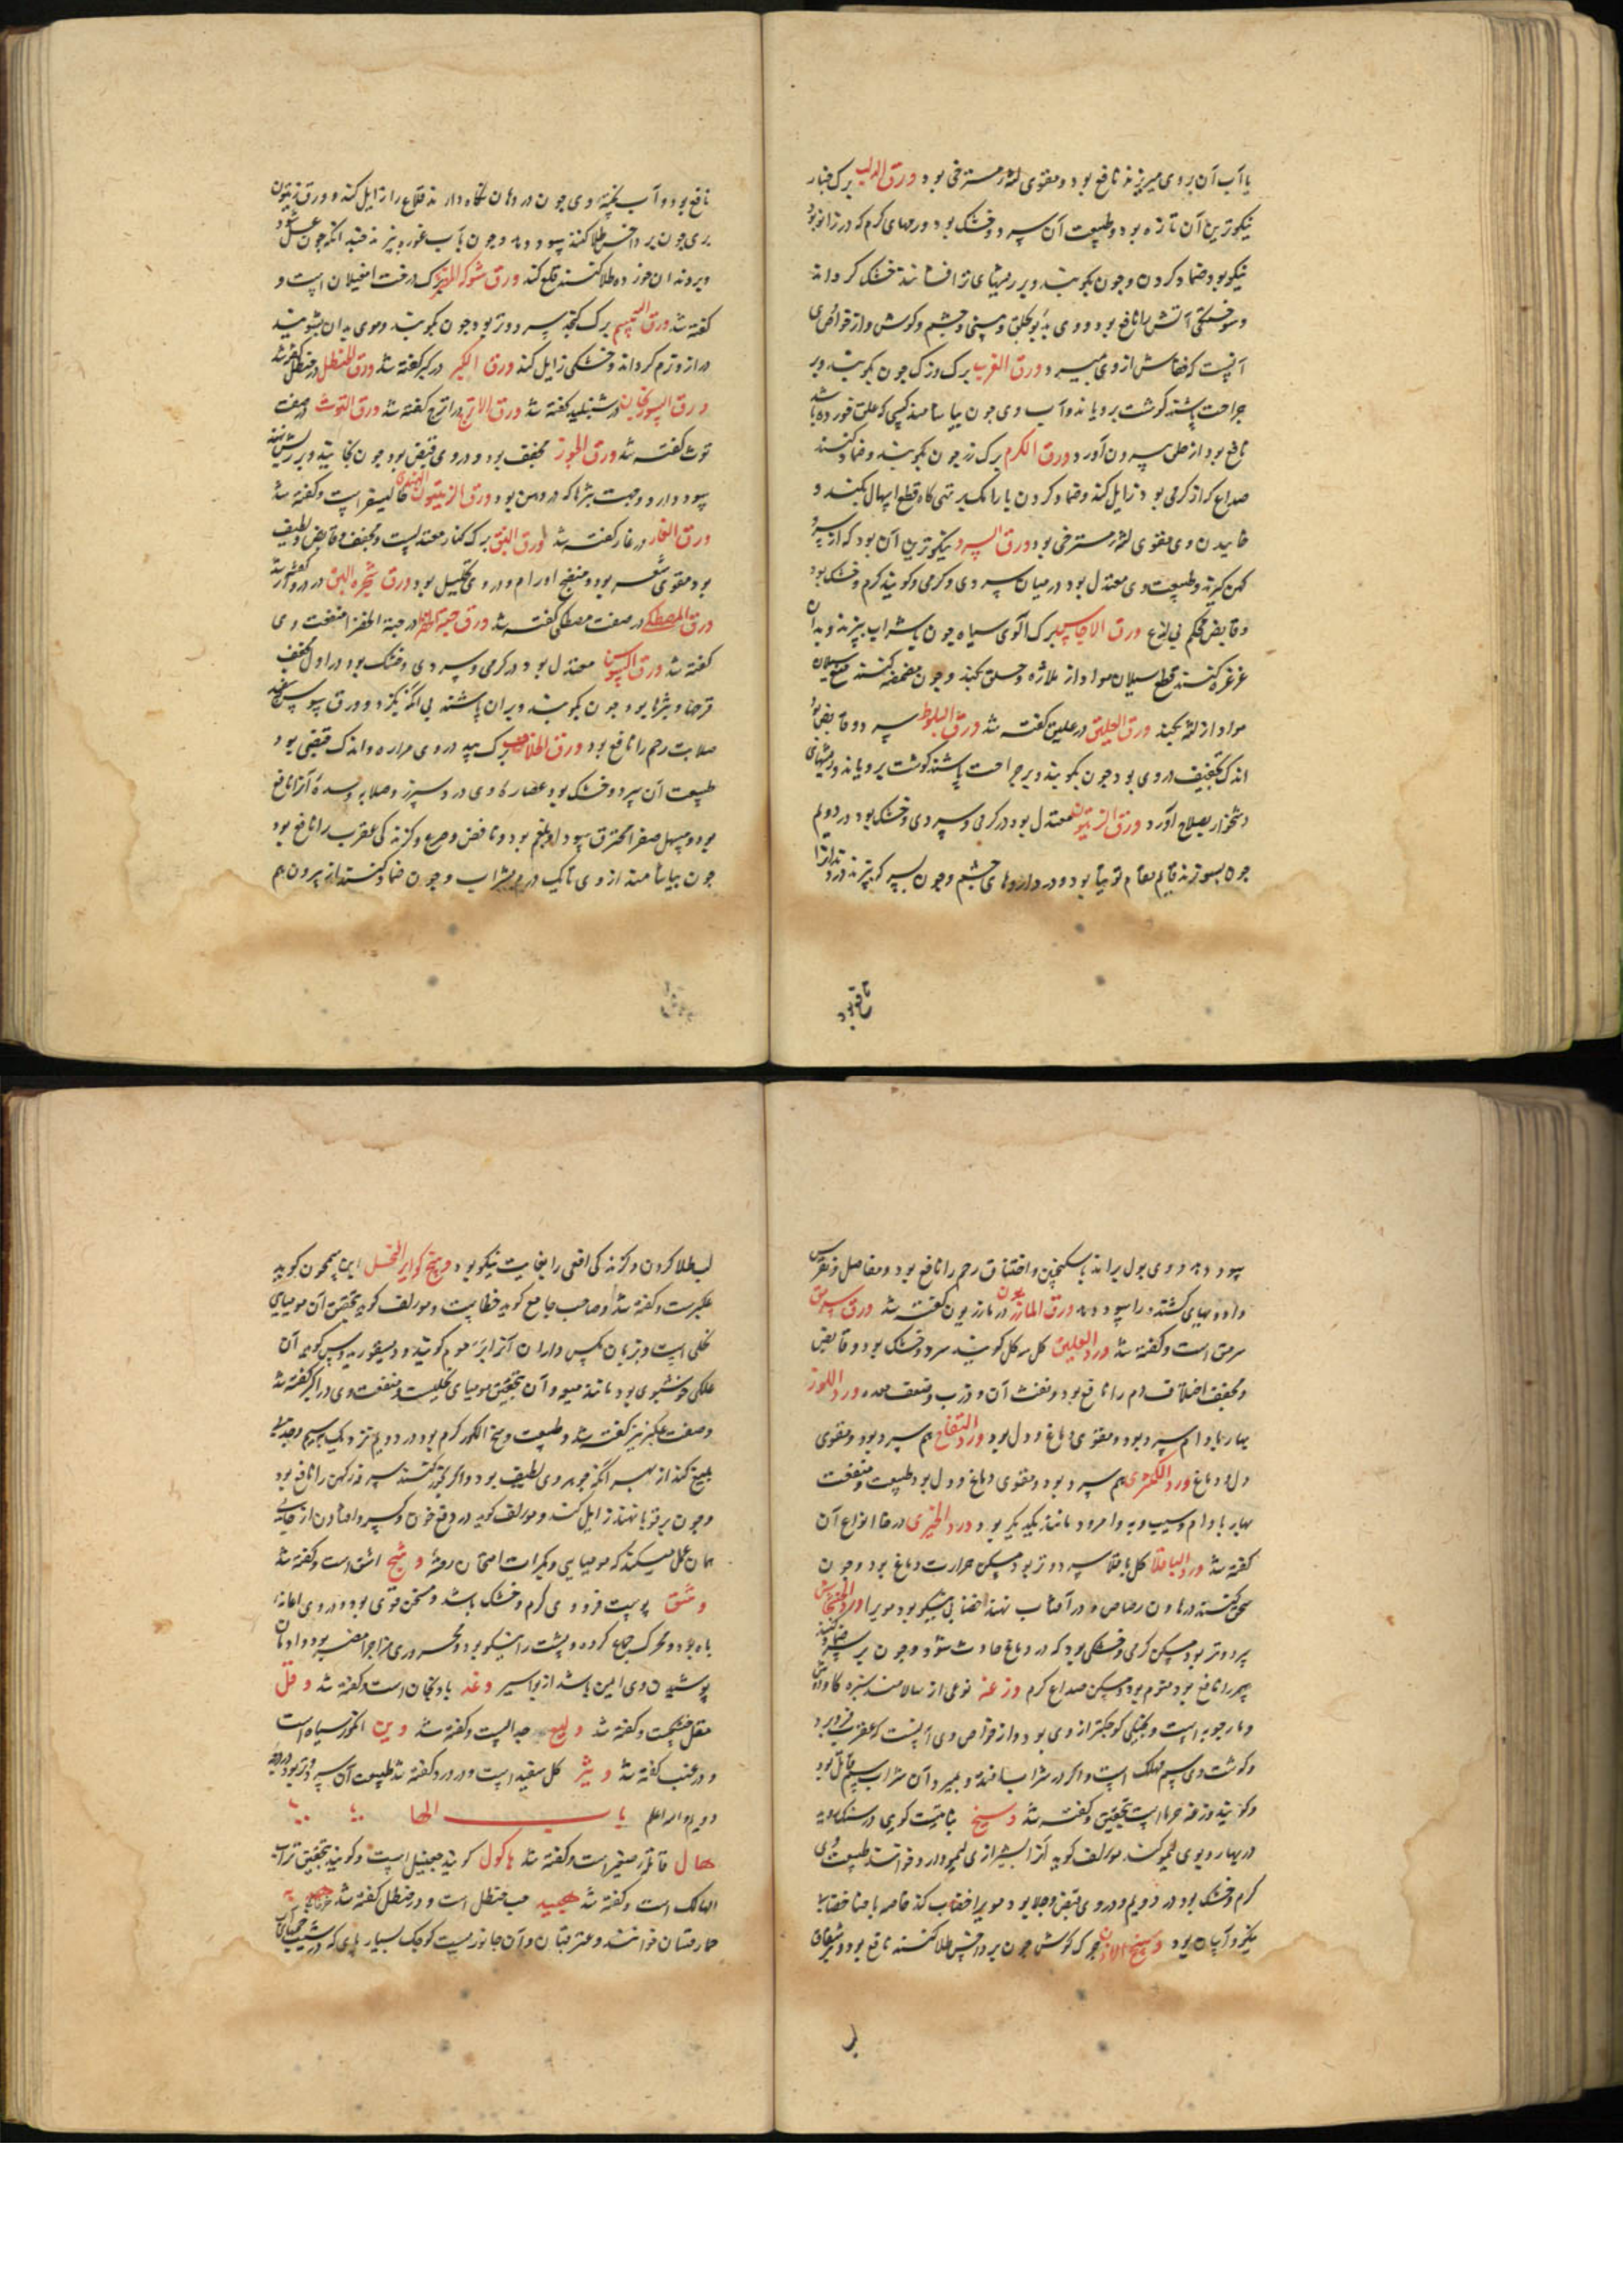 با آب آن بروی میریزند نافع بود و مقوی لثه مسترخی بود ورق الدلب برک چنار
نیکوترین آن تازه بود و طبیعت آن سرد و خشک بود ورمهای کرم که در زانو بود
نیکو بود ضماد کردن و چون بکوبند و بر ریشهای تر افشانند خشک کرداند
و سوختکی آتش را نافع بود و وی بد بود بحلق و بینی و چشم و کوش و از خواص وی
آنست که خفاش از وی میرد ورق الغرب برک وزک چون بکوبند و بر
جراحت باشند کوشت برویاند و آب وی چون بیاشامند کسی که علق خورده باشد
نافع بود از حلق بیرون آورد ورق الکرم برک رز چون بکوبند و ضماد کنند
صداع که از کرمی بود زایل کند و ضماد کردن با رامک بر تهی کاه قطع اسهال بکند و
خاییدن وی مقوی لثه مسترخی بود ورق السرو نیکوترین آن بود که از سرو
کهن کیرند و طبیعت وی معتدل بود در میان سردی و کرمی و کویند کرم و خشک بود
و قابض محکم بی لذع ورق الاجاص برک آلوی سیاه چون با شراب بپزند و بدان
غرغره کنند قطع سیلان مواد از ملازه و حلق بکند و چون مضمضه کنند قطع سیلان
مواد از لثه بکند ورق العلیق در علیق کفته شد ورق البلوط سرد و قابض بود
اندک تجفیف در وی بود چون بکوبند و بر جراحت باشند کوشت برویاند و ریشهای
دشخوار بصلاح آورد ورق الزیتون معتدل بود در کرمی و سردی و خشک بود در دویم
چون بسوزند قایم مقام توتیا بود و در داروهای چشم و چون بسرکه بپزند درد دندان را
نافع بود
نافع بود و آب پخته وی چون در دهان نکاه دارند قلاع را زایل کند و ورق زیتون
بری چون بر داخس طلا کنند سود دهد و چون بآب غوره بپزند چندانکه چون عسل شود
و بر دندان خورده طلا کنند قلع کند ورق شوکه المصریه برک درخت امغیلان است و
کفته شد ورق السمسم برک کنجد سرد و تر بود چون بکوبند و موی بدان بشویند
دراز و نرم کرداند و خشکی زایل کند ورق الکبر در کبر کفته شد ورق الحنظل در حنظل کفته شد
ورق السورنجان در شنبلید کفته شد ورق الاترج در اترج کفته شد ورق التوث در صفت
توث کفته شد ورق الجوز مجفف بود و در وی قبض بود چون بخایند و بر ریش نهند
سود دارد و جهت بثرها که در دهن بود ورق الزیتون الهندی خالیسفر است و کفته شد
ورق الغار در غار کفته شد ورق النبق برک کنار معتدلست و مجفف و قابض و لطیف
بود مقوی شعر بود و منضج اورام و در وی تحلیل بود ورق شجره البق در دردار کفته شد
ورق المصطکی در صفت مصطکی کفته شد ورق حبة الخضرا در حبة الخضرا منفعت وی
کفته شد ورق السوسن معتدل بود در کرمی و سردی و خشک بود در اول مجفف
قرحها و بثرها بود چون بکوبند و بر آن باشند بی انکه بکزد و ورق سوسن
صلابت رحم را نافع بود ورق الخلاف برک بید در وی مراره و اندک قبضی بود
طبیعت آن سرد و خشک بود عصاره وی درد سپرز و صلابه و سده آنرا نافع
بود و مسهل صفرا محترق سودا و بلغم بود و نافض و صرع و کزندکی عقرب را نافع بود
چون بیاشامند از وی تا یک درم بشراب و چون ضماد کنند از بیرون هم
سود دهد و وی بول براند با سکنجبین و اختناق رحم را نافع بود و مفاصل و نقرس
و اورام کشنده را سود دهد ورق المازریون در مازریون کفته شد ورق سرمق
سرمق است و کفته شد ورد العلیق کل سه کل کویند سرد و خشک بود و قابض
و مجفف اختلاف دم را نافع بود و نفث آن و ذرب و ضعف معده ورد اللوز
بهار بادام سرد بود و مقوی دماغ و دل بود ورد التفاح هم سرد بود و مقوی
دل و دماغ ورد الکمثری هم سرد بود و مقوی دماغ و دل بود طبیعت و منفعت
بهار بادام و سیب و به و امرود مانند یکدیکر بود ورد الخیری در خا انواع آن
کفته شد ورد الباقلا کل باقلا سرد و تر بود مسکن حرارت دماغ بود و چون
سحق کنند در هاون رصاص و در آفتاب نهند خضابی نیکو بود مویرا ورد الخشخاش
سرد و تر بود مسکن کرمی و خشکی بود که در دماغ حادث شود و چون بر سر ضماد کنند
سهر را نافع بود منوم بود و مسکن صداع کرم وزغه نوعی از سالامندرا
و مارجوبه است و بشکل کوچکتر از وی بود و از خواص وی آنست که عقرب فرو برد
و کوشت وی سم مهلک است و اکر در شراب افتد و بمیرد آن شراب سم قاتل بود
و کویند وزغه حربا است بتحقیق و کفته شد وسخ نباتیست کوهی در سنکها روید
در بهار و بوی لیمو کند مولف کوید آنرا بشیرازی لیمو دارو خوانند طبیعت وی
کرم و خشک بود در دویم و در وی قبض و جلا بود و مویرا خضاب کند خاصه با حنا خضاب
نیکو و آسان بود وسخ الاذن چرک کوش چون بر داخس طلا کنند نافع بود و بر شقاق
لب طلا کردن و کزندکی افعی را بغایت نیکو بود وسخ کوایر النحل ابن سمحون کوید
عکبرست و کفته شد و صاحب جامع کوید خطاست و مولف کوید بتحقیق آن مومیای
نحلی است و بزبان مکس داران آنرا بر موم کویند و دیسقوریدوس کوید آن
علکی خوشبوی بود مانند میعه و آن بتحقیق مومیای نحلیست و منفعت وی در اکبر کفته شد
و صفت عکبر نیز کفته شد و طبیعت وسخ الکور کرم بود در دویم نزدیک بسیم و جذب
بلیغ کند از بهر آنکه جوهر وی لطیف بود و اکر بخور کنند سرفه کهن را نافع بود
و چون بر قوبا نهند زایل کند و مولف کوید در دفع خون و کسر و افتادن از جای
همان عمل میکند که مومیایی و بکرات امتحان رفته وشج اشق است و کفته شد
وشق پوست فرو وی کرم و خشک باشد و مسخن قوی بود و در وی اعانه
باه بود و محرک جماع کرده و پشت را نیکو بود و محروری مزاجرا مضر بود و ادمان
پوشیدن وی ایمن باشد از بواسیر وغد بادنجان است و کفته شد وقل
مقل خشکست و کفته شد ولیع طلعست و کفته شد وین انکور سیاه است
و در عنب کفته شد وثیر کل سفید است و در ورد کفته شد طبیعت آن سرد و تر بود در درجه
دویم والله اعلم باب الها
هال قاقله صغیر است و کفته شد هاکول کویند حبیل است و کویند بتحقیق تراب
الهالک است و کفته شد هبید حب حنظل است و در حنظل کفته شد
حمار قبان خوانند و عنز قبان و آن جانوریست کوچک بسیار پای که در شیب خمهای آب
بر